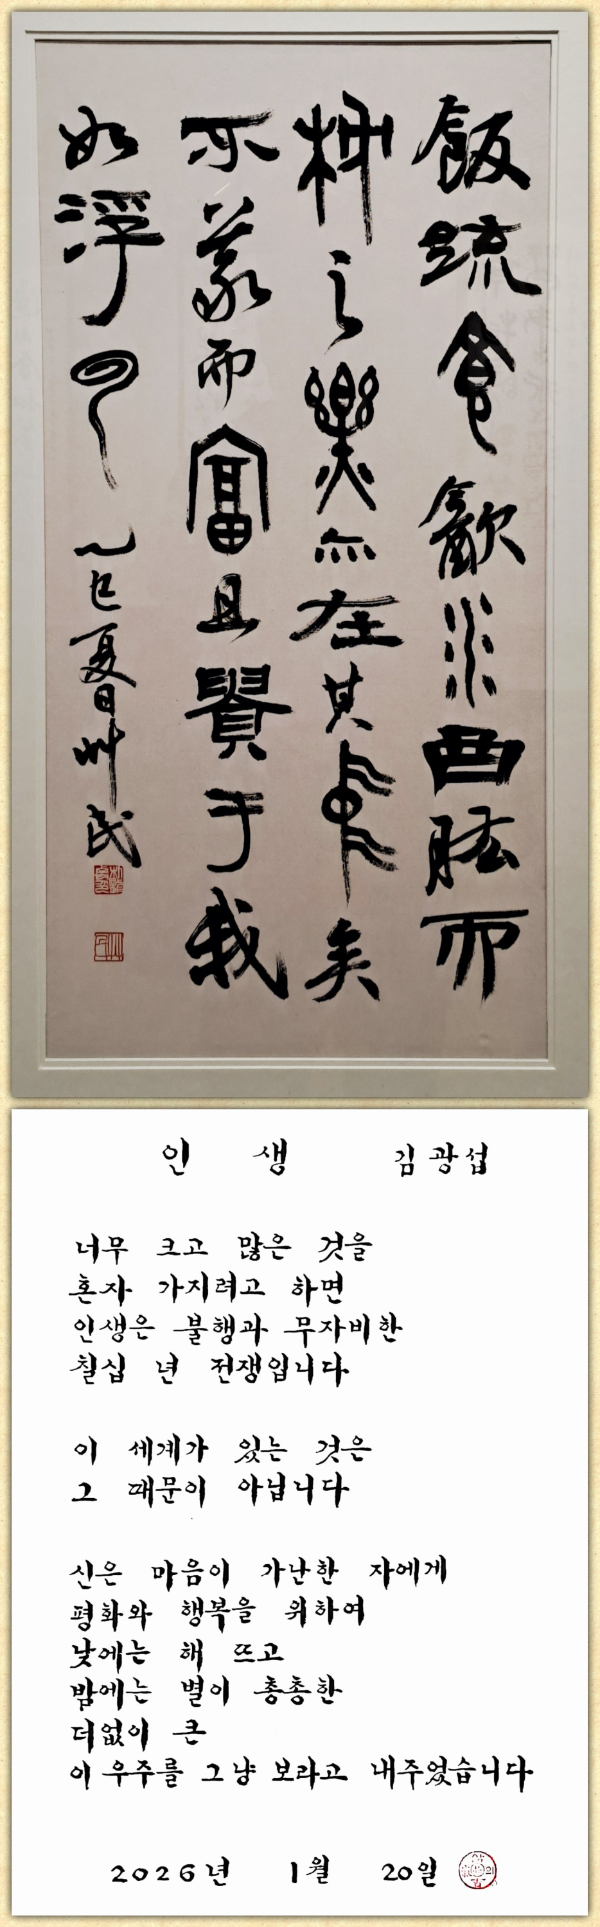 飯疏食㱃水曲肱而
枕之樂亦在其中矣
不義而富且貴于我
如浮云 乙巳夏日艸民
인 생 김광섭
너무 크고 많은 것을
혼자 가지려고 하면
인생은 불행과 무자비한
칠십 년 전쟁입니다
이 세계가 있는 것은
그 때문이 아닙니다
신은 마음이 가난한 자에게
평화와 행복을 위하여
낮에는 해 뜨고
밤에는 별이 총총한
더없이 큰
이 우주를 그냥 보라고 내주었습니다
2026년 1월 20일